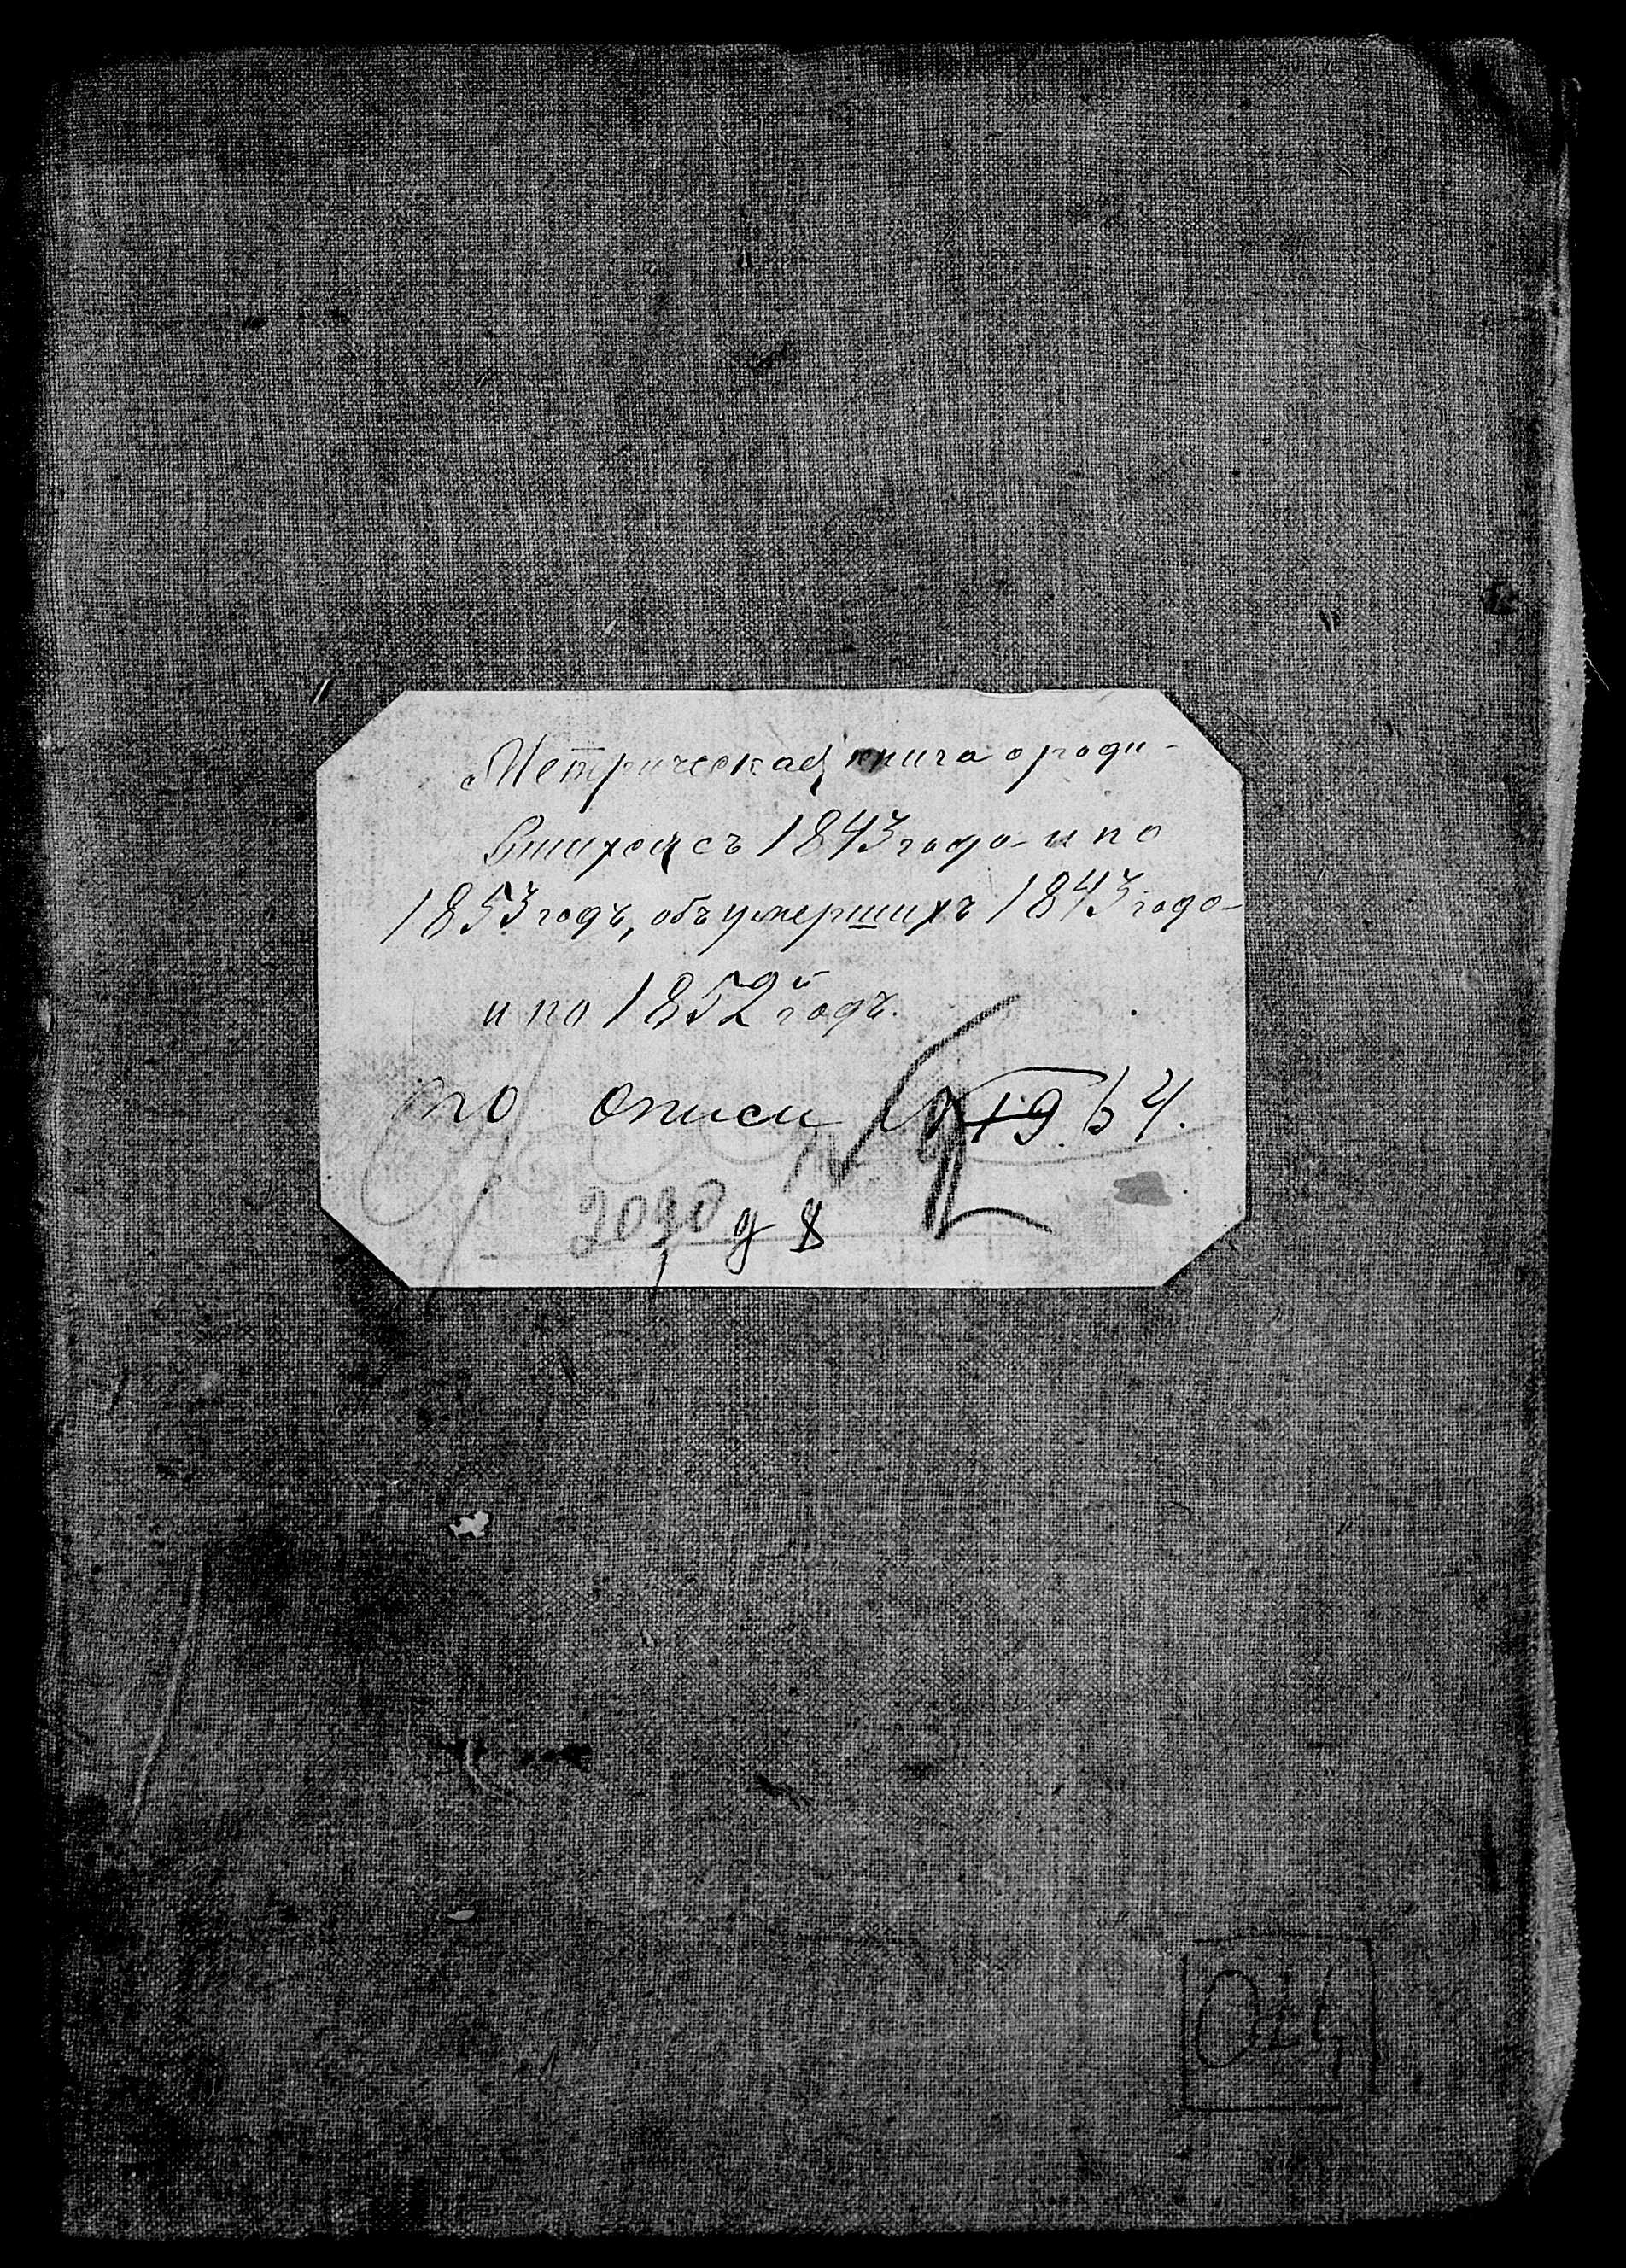 Метрическая книга о роди-
вшихся съ 1843 года и по
1853 годъ, объ умершихъ 1843 года
и по 1852й годъ.
по описи № 19. 64.
д 8
ОЦ